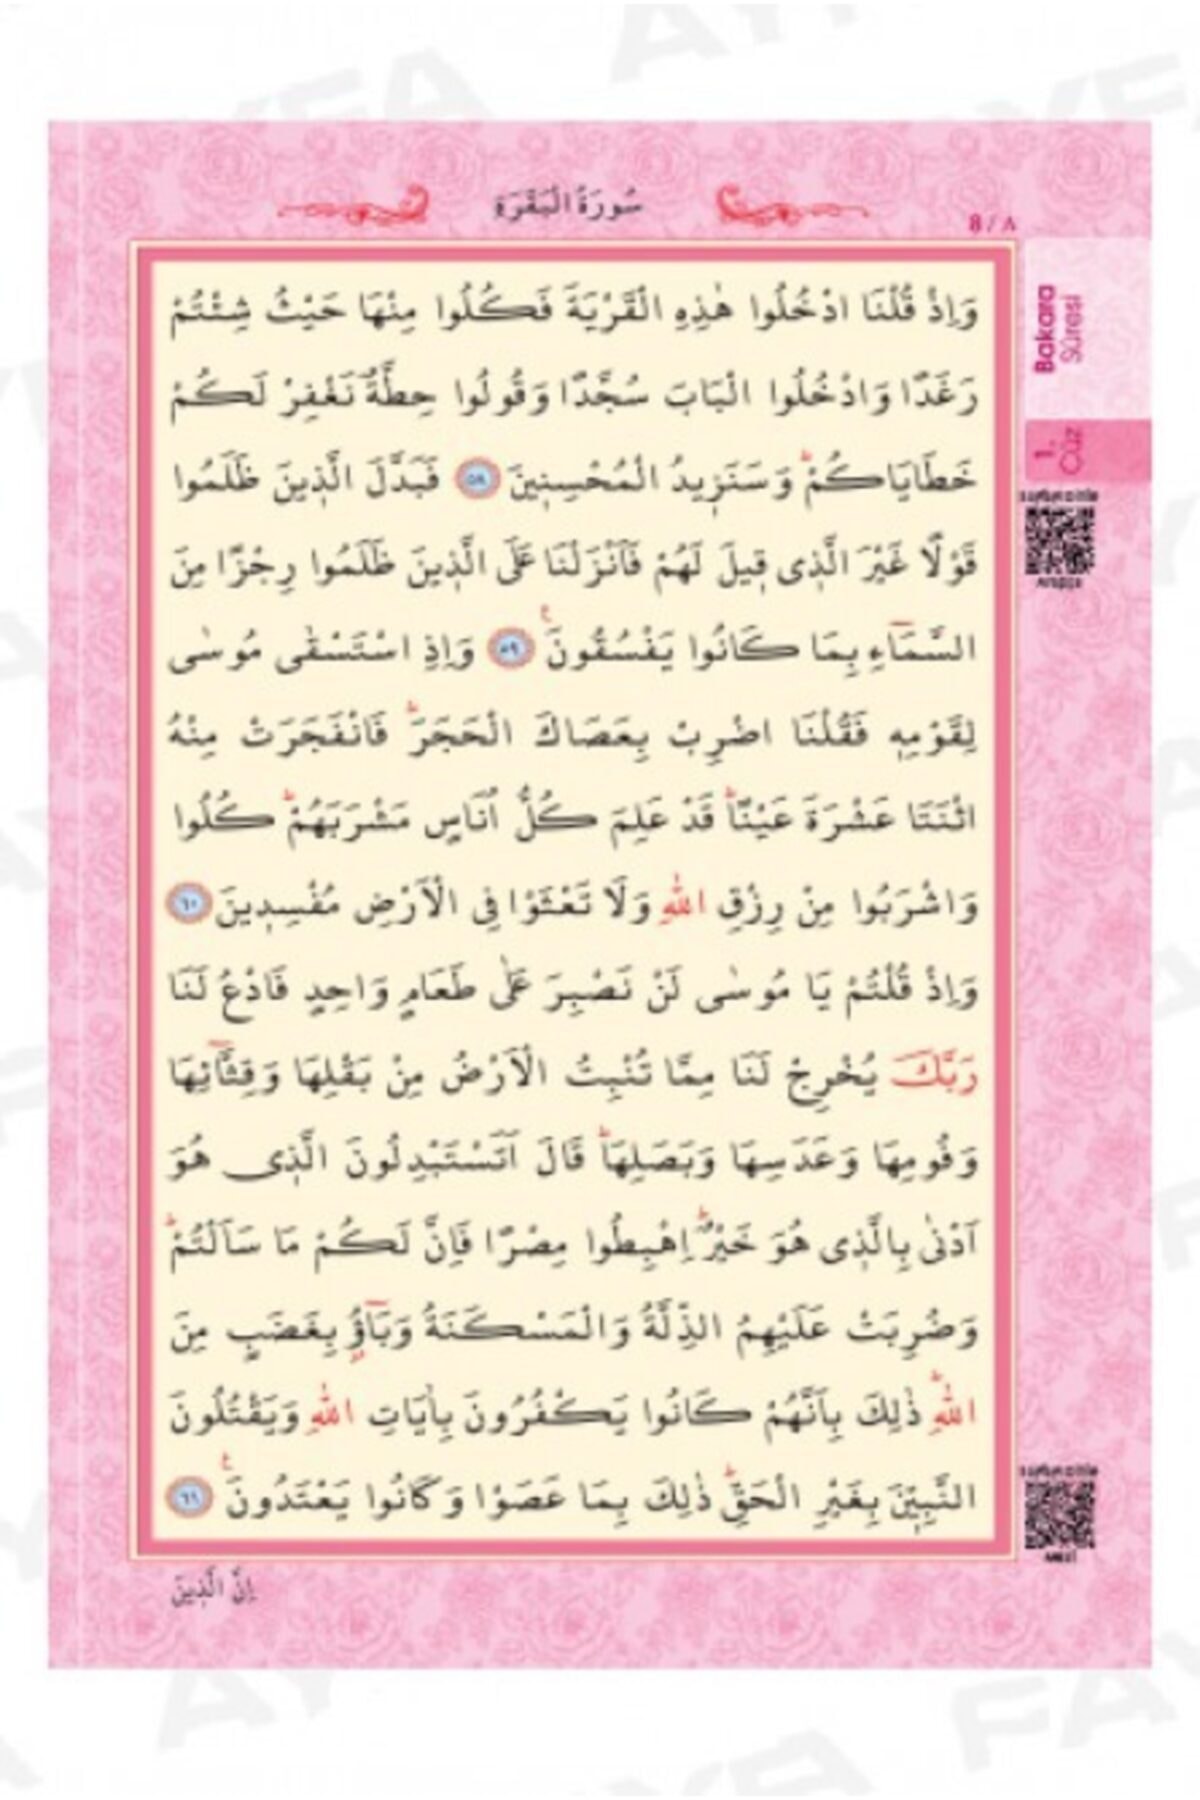 سُورَةُ الْبَقَرَةِ
8 / ٨
Bakara
Sûresi
1.
Cüz
وَاِذْ قُلْنَا ادْخُلُوا هٰذِهِ الْقَرْيَةَ فَكُلُوا مِنْهَا حَيْثُ شِئْتُمْ
رَغَدًا وَادْخُلُوا الْبَابَ سُجَّدًا وَقُولُوا حِطَّةٌ نَغْفِرْ لَكُمْ
خَطَايَاكُمْۜ وَسَنَزٖيدُ الْمُحْسِنٖينَ ﴿٥٨﴾ فَبَدَّلَ الَّذٖينَ ظَلَمُوا
قَوْلًا غَيْرَ الَّذٖى قٖيلَ لَهُمْ فَاَنْزَلْنَا عَلَى الَّذٖينَ ظَلَمُوا رِجْزًا مِنَ
السَّمَٓاءِ بِمَا كَانُوا يَفْسُقُونَ ﴿٥٩﴾ وَاِذِ اسْتَسْقٰى مُوسٰى
لِقَوْمِهٖ فَقُلْنَا اضْرِبْ بِعَصَاكَ الْحَجَرَۜ فَانْفَجَرَتْ مِنْهُ
اثْنَتَا عَشْرَةَ عَيْنًاۜ قَدْ عَلِمَ كُلُّ اُنَاسٍ مَشْرَبَهُمْۜ كُلُوا
وَاشْرَبُوا مِنْ رِزْقِ اللّٰهِ وَلَا تَعْثَوْا فِى الْاَرْضِ مُفْسِدٖينَ ﴿٦٠﴾
وَاِذْ قُلْتُمْ يَا مُوسٰى لَنْ نَصْبِرَ عَلٰى طَعَامٍ وَاحِدٍ فَادْعُ لَنَا
رَبَّكَ يُخْرِجْ لَنَا مِمَّا تُنْبِتُ الْاَرْضُ مِنْ بَقْلِهَا وَقِثَّٓائِهَا
وَفُومِهَا وَعَدَسِهَا وَبَصَلِهَاۜ قَالَ اَتَسْتَبْدِلُونَ الَّذٖى هُوَ
اَدْنٰى بِالَّذٖى هُوَ خَيْرٌۜ اِهْبِطُوا مِصْرًا فَاِنَّ لَكُمْ مَا سَاَلْتُمْۜ
وَضُرِبَتْ عَلَيْهِمُ الذِّلَّةُ وَالْمَسْكَنَةُ وَبَٓاؤُ۫ بِغَضَبٍ مِنَ
اللّٰهِۜ ذٰلِكَ بِاَنَّهُمْ كَانُوا يَكْفُرُونَ بِاٰيَاتِ اللّٰهِ وَيَقْتُلُونَ
النَّبِيّٖنَ بِغَيْرِ الْحَقِّۜ ذٰلِكَ بِمَا عَصَوْا وَكَانُوا يَعْتَدُونَ ﴿٦١﴾
اِنَّ الَّذٖينَ
AYFA